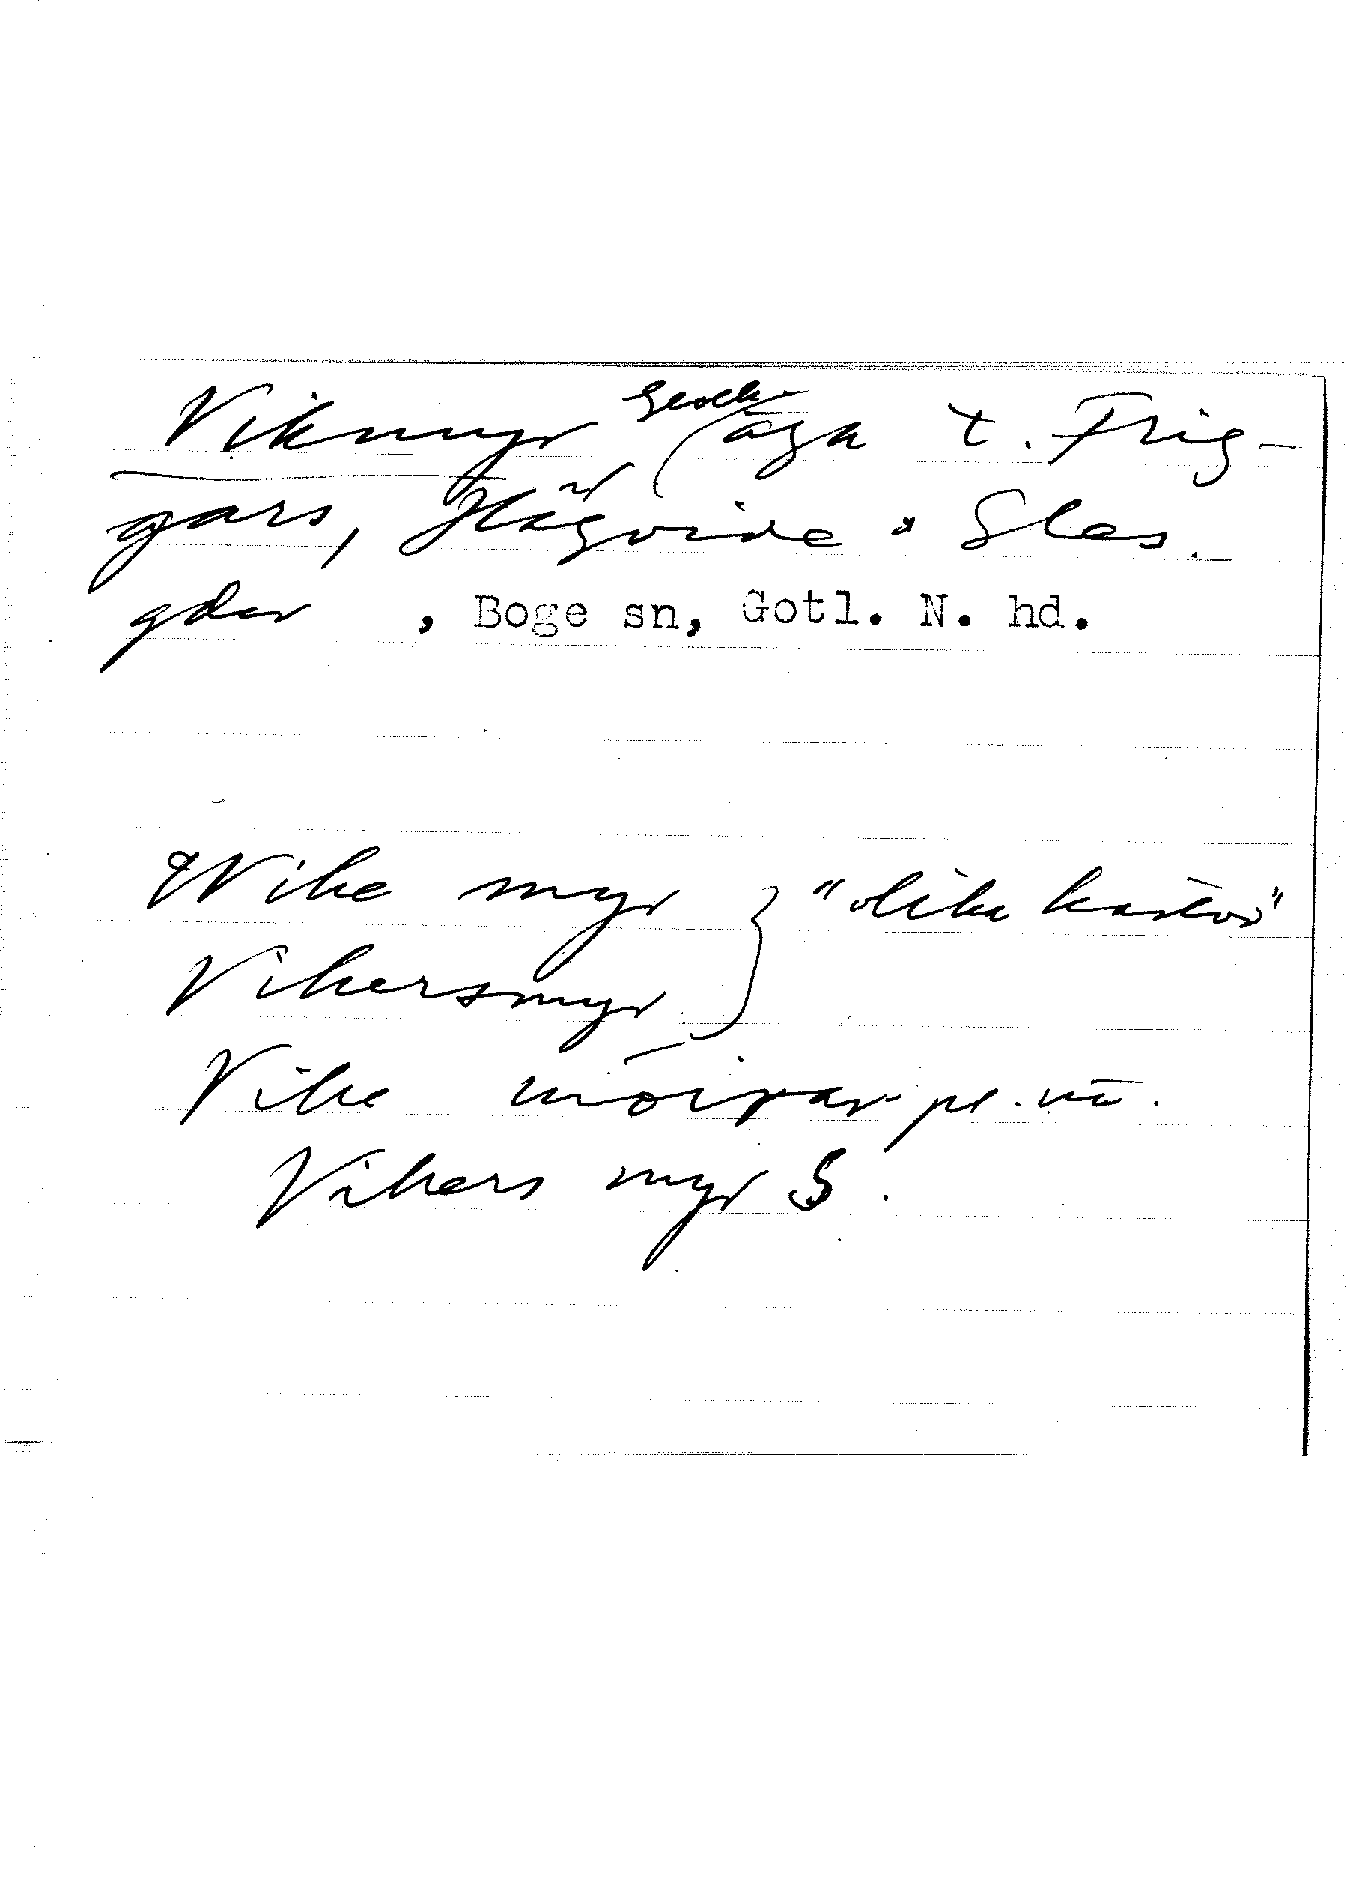 Vikmyr äga t. Frig-
gars, Hägvide o Slas.
gdar , Boge sn, Gotl. N. hd.
Wike myr } "olika kartor"
Vikersmyr
Vike möirar pl. nä.
Vikers myr S.